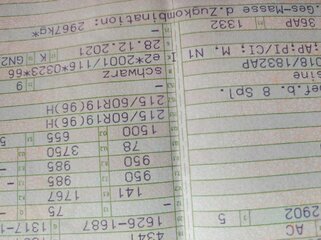 AC
2902 5
ef.b. 8 Spl.
sine
018/1832AP
;AP;PICI; M. N1
36AP 1332
.Ges-Masse d.Zugkombination: 2967kg*
4341
1626-1687 1317-1
– 75 –
141 1767
950 985
950 985
78 3750
1500 655
215/60R19(96)H
215/60R19(96)H
–
schwarz 9
e2*2001/116*0323*66
28.12.2021 K GN2
–